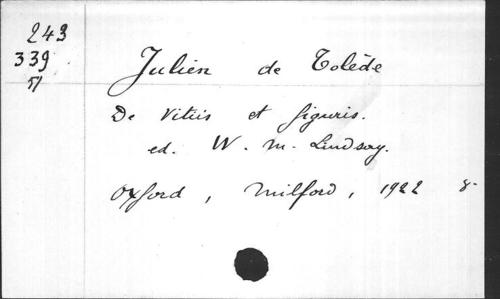 243
339
51
Julien de Tolède
De Vitiis et figuris.
ed. W. M. Lindsay.
Oxford, Milford, 1922 8-